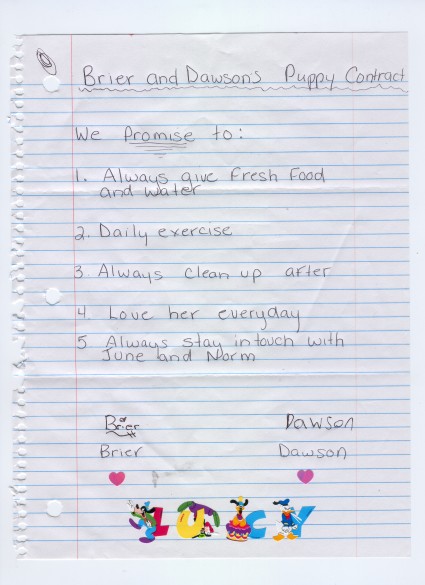 Brier and Dawson's Puppy Contract
We Promise to:
1. Always give Fresh Food
and water
2. Daily exercise
3. Always clean up after
4. Love her everyday
5 Always stay in touch with
June and Norm
Brier Dawson
Brier Dawson
LUCY